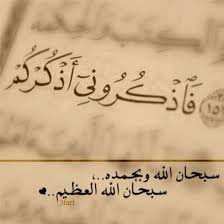 فَٱذْكُرُونِىٓ أَذْكُرْكُمْ
سبحان الله وبحمده..،
سبحان الله العظيم..♥